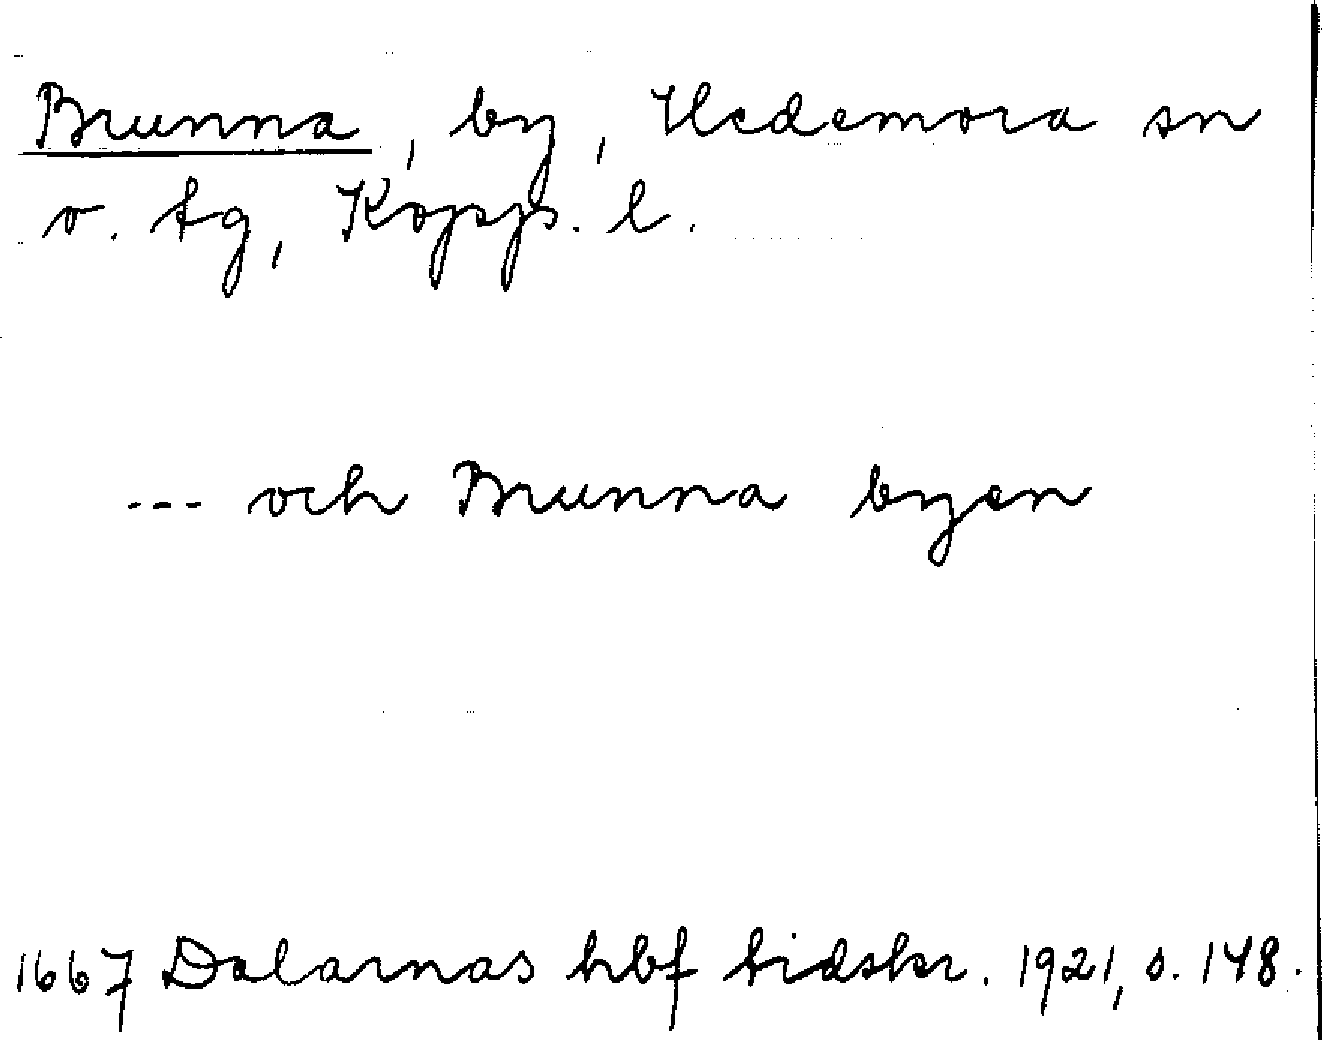 Brunna, by, Hedemora sn
o. tg, Kopp. l.
--- och Brunna byen
1667 Dalarnas hbf tidskr. 1921, s. 148.